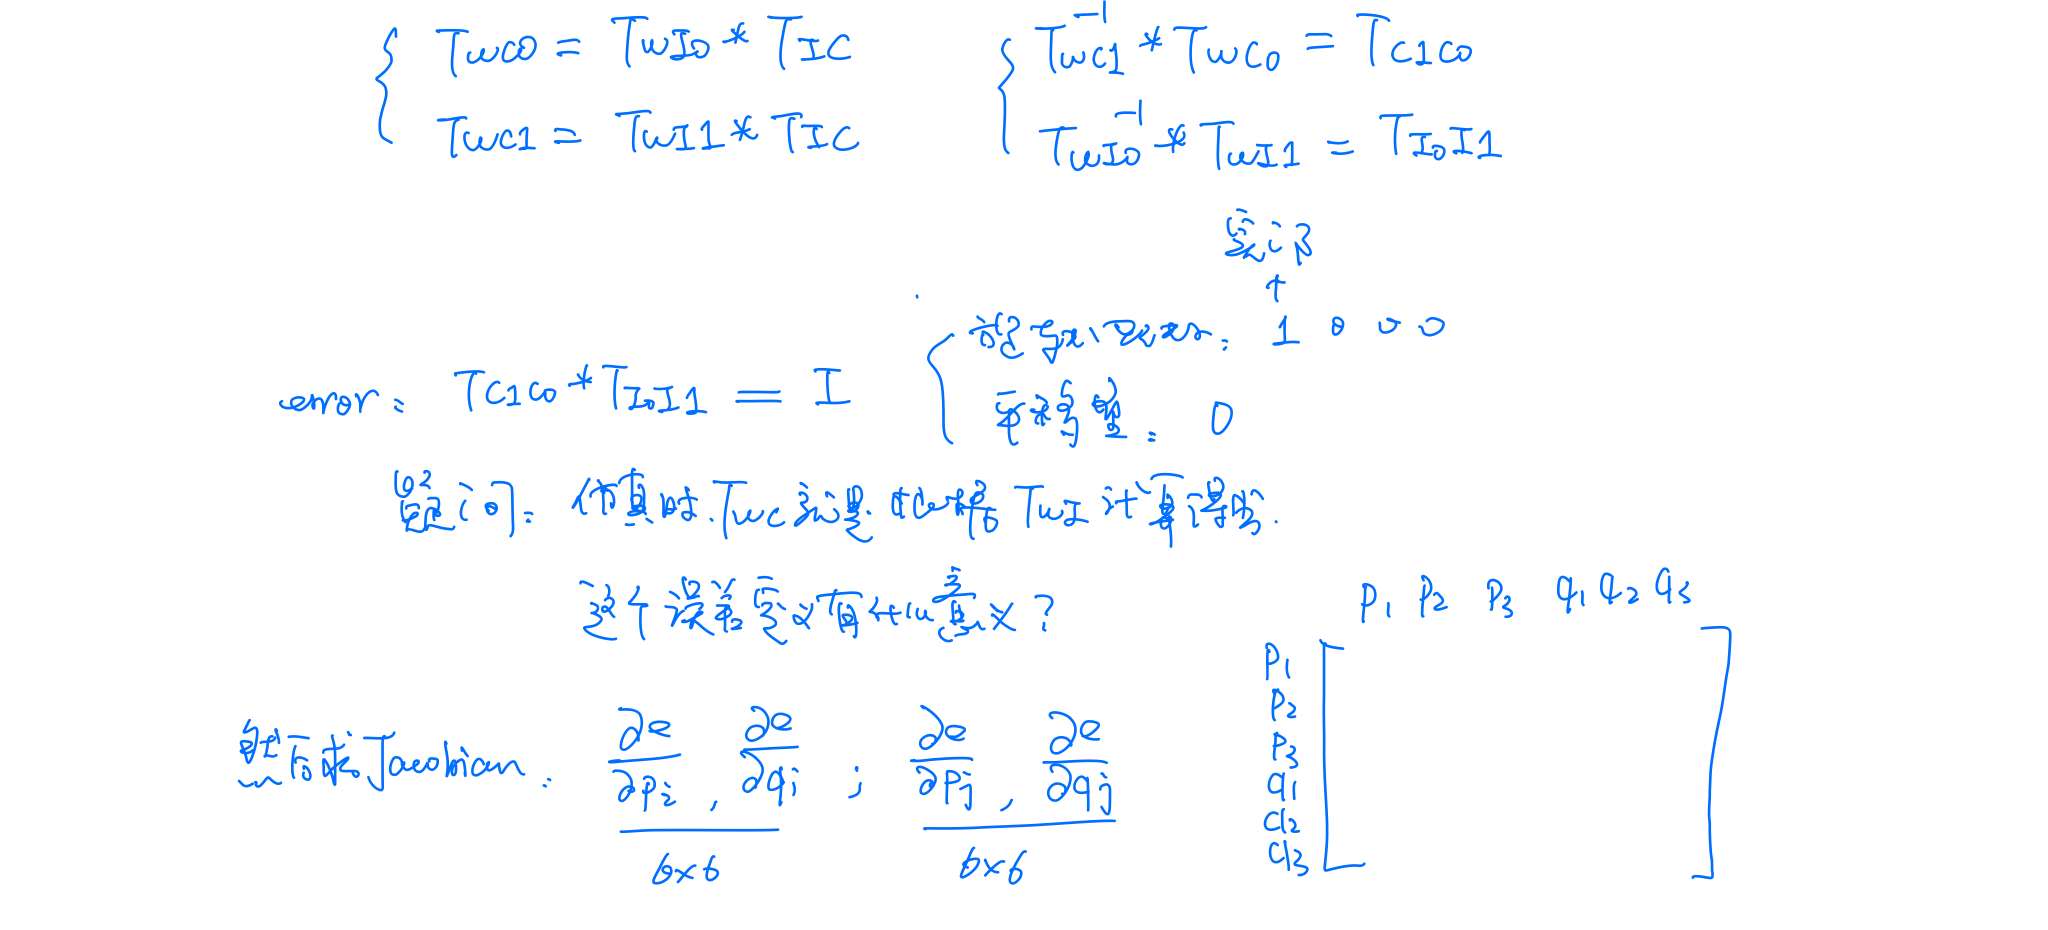 Twc0 = TwI0 * TIC
Twc1 = TwI1 * TIC
Twc1⁻¹ * Twc0 = Tc1c0
TwI0⁻¹ * TwI1 = TI0I1
实部
↑
旋转: 1 0 0 0
平移向量: 0
error: Tc1c0 * TI0I1 = I
疑问: 仿真时. Twc就是根据 TwI 计算得出.
这个误差定义有什么意义?
然后求 Jacobian:
∂e/∂pi , ∂e/∂qi ; ∂e/∂pj , ∂e/∂qj
6x6 6x6
p1 p2 p3 q1 q2 q3
p1
p2
p3
q1
q2
q3